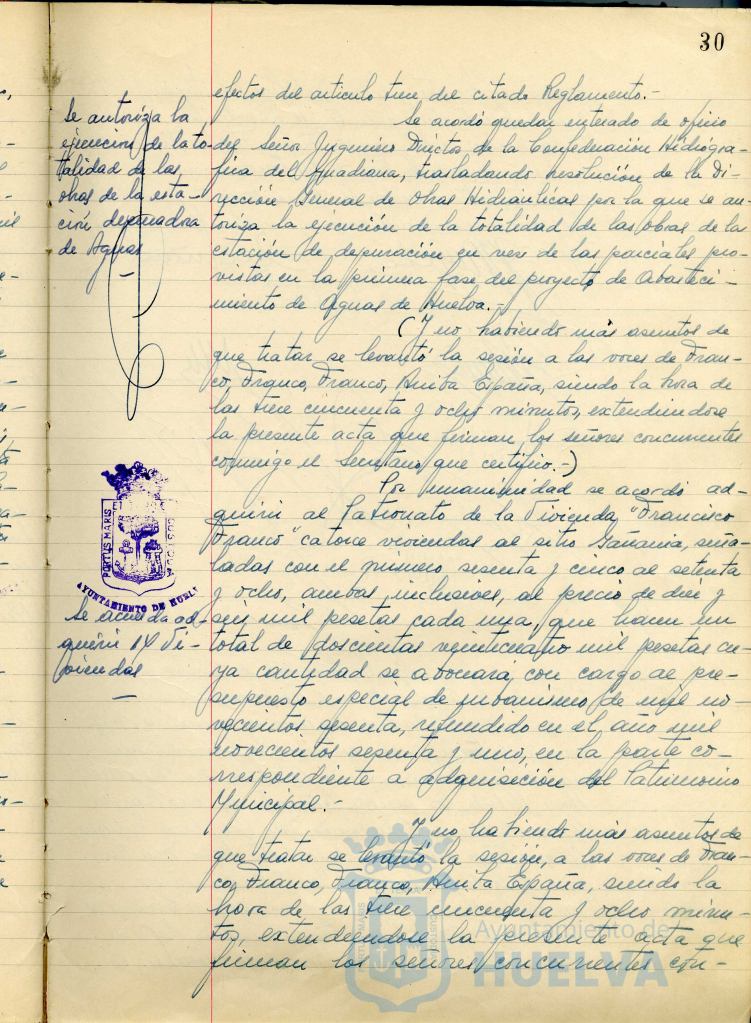 30
efectos del articulo tiene del citado Reglamento.-
Se autoriza la
ejecucion de la to-
talidad de las
obras de la esta-
ción depuradora
de Aguas
—
Se acordó quedar enterado de oficio
del Señor Ingeniero Director de la Confederación Hidrogra-
fica del Guadiana, trasladando resolución de la Di-
rección General de Obras Hidraúlicas por la que se au-
toriza la ejecución de la totalidad de las obras de la
estación de depuración en vez de las parciales pre-
vistas en la primera fase del proyecto de Abasteci-
miento de Aguas de Huelva.-
(Y no habiendo más asuntos de
que tratar se levantó la sesión a las voces de Fran-
co, Franco, Franco, Arriba España, siendo la hora de
las trece cincuenta y ocho minutos, extendiendose
la presente acta que firman los señores concurrentes
conmigo el Secretario que certifico.-)
PORTUS MARIS ET TERRAE CUSTODIA
AYUNTAMIENTO DE HUELVA
Se acuerda ad-
quirir 14 vi-
viendas
—
Por unanimidad se acordó ad-
quirir al Patronato de la Vivienda "Francisco
Franco" catorce viviendas al sitio Gañania, seña-
ladas con el número sesenta y cinco al setenta
y ocho, ambas inclusives, al precio de diez y
seis mil pesetas cada una, que hacen un
total de doscientas veinticuatro mil pesetas cu-
ya cantidad se abonará con cargo al pre-
supuesto especial de urbanismo de mil no-
vecientos sesenta, refundido en el año mil
novecientos sesenta y uno, en la parte co-
rrespondiente a adquisición del Patrimonio
Municipal.-
Y no habiendo más asuntos de
que tratar se levantó la sesión, a las voces de Fran-
co, Franco, Franco, Arriba España, siendo la
hora de las trece cincuenta y ocho minu-
tos, extendiendose la presente acta que
firman los señores concurrentes con-
Ayuntamiento de
HUELVA